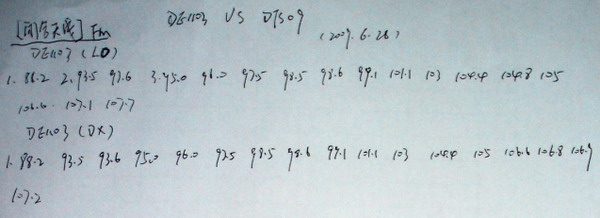 DE1103 VS D7509
[闭合天线] Fm (2009.6.28)
DE1103 (LO)
1. 88.2 2. 93.5 93.6 3. 95.0 96.0 97.5 98.5 98.6 99.1 101.1 103 104.4 104.8 105
106.6 107.1 107.7
DE1103 (DX)
1. 88.2 93.5 93.6 95.0 96.0 97.5 98.5 98.6 99.1 101.1 103 104.4 105 106.6 106.8 106.9
107.2